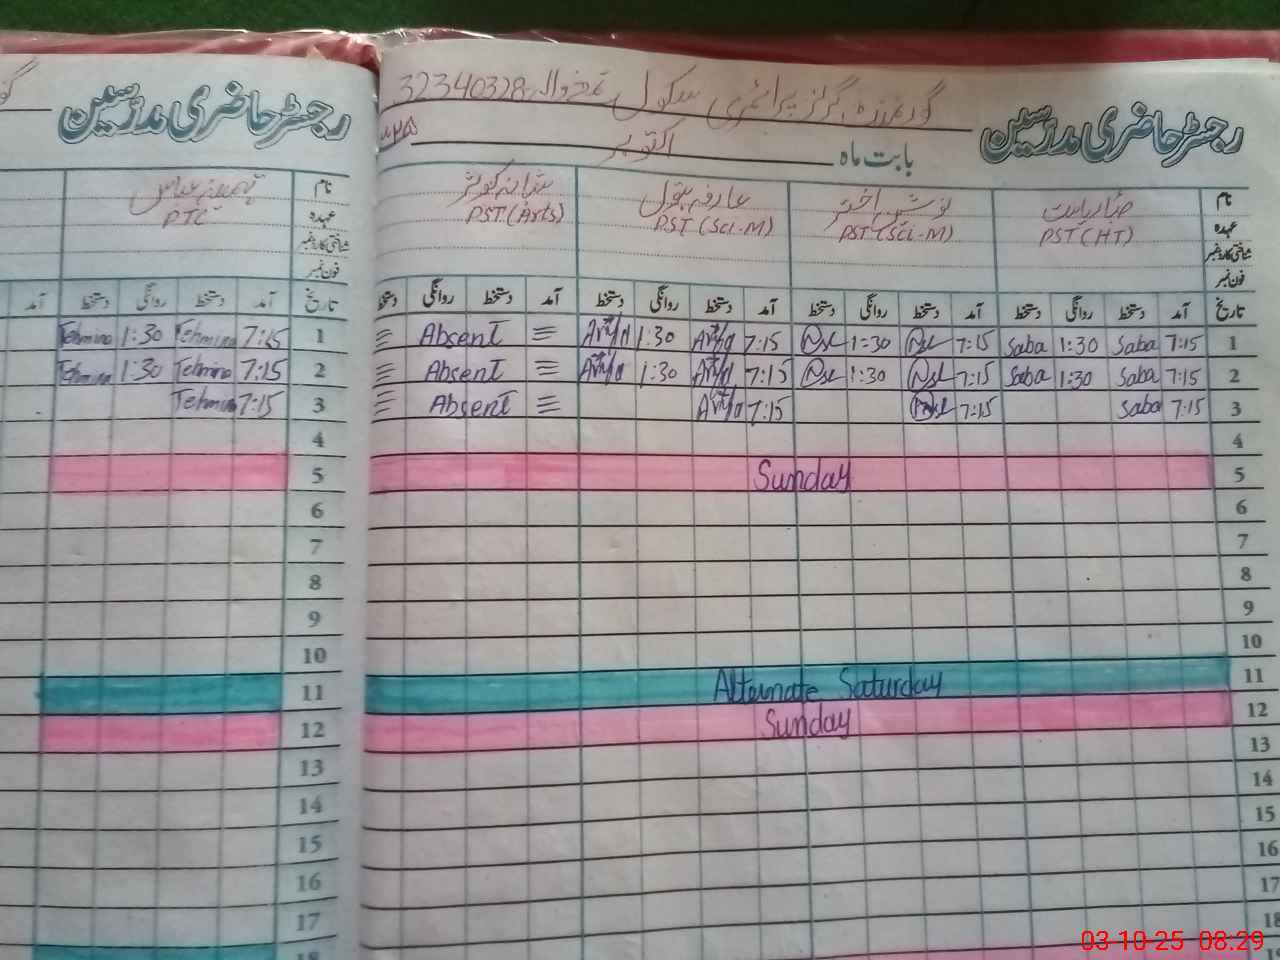 گورنمنٹ گرلز پرائمری سکول 32340328
رجسٹر حاضری مدرسین
بابت ماہ اکتوبر
نام
عہدہ PST (HT) PST (Sci-M) عارفہ بتول PST (Sci-M) PST (Arts)
شناختی کارڈ نمبر
فون نمبر
تاریخ آمد دستخط روانگی دستخط آمد دستخط روانگی دستخط آمد دستخط روانگی دستخط آمد دستخط روانگی دستخط
1 7:15 Saba 1:30 Saba 7:15 1:30 7:15 1:30 Absent
2 7:15 Saba 1:30 Saba 7:15 1:30 7:15 1:30 Absent
3 7:15 Saba 7:15 7:15 Absent
4
5 Sunday
6
7
8
9
10
11 Alternate Saturday
12 Sunday
13
14
15
16
17
18
رجسٹر حاضری مدرسین
نام
عہدہ PTC
شناختی کارڈ نمبر
فون نمبر
تاریخ آمد دستخط روانگی دستخط آمد
1 7:15 Tehmina 1:30 Tehmina
2 7:15 Tehmina 1:30 Tehmina
3 7:15 Tehmina
4
5
6
7
8
9
10
11
12
13
14
15
16
17
18
03-10-25 08:29